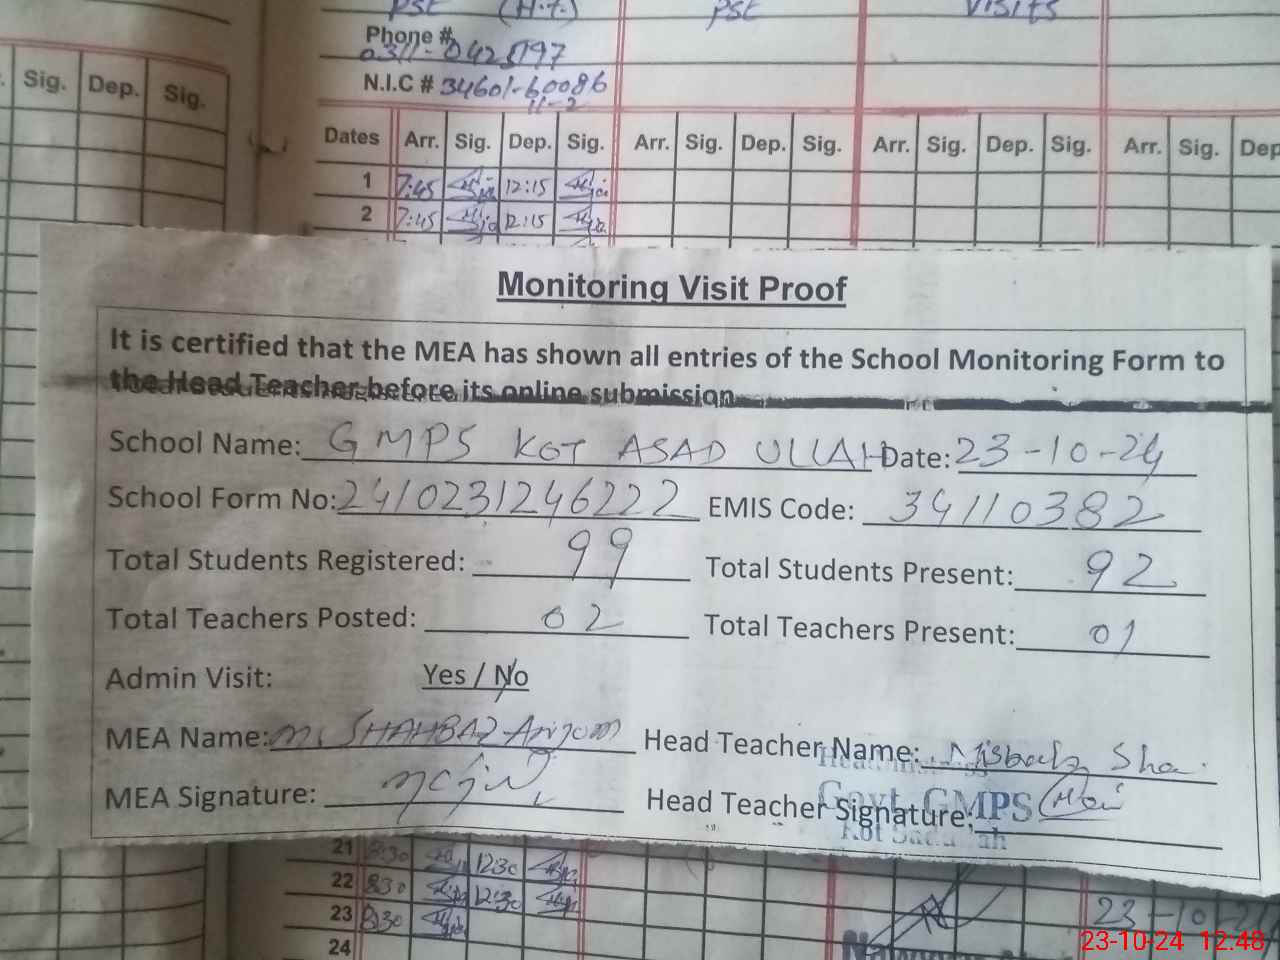 PST (H.t.) PST VISITS
Phone #
N.I.C # 34601-60086
11-2
Sig. Dep. Sig.
Dates Arr. Sig. Dep. Sig. Arr. Sig. Dep. Sig. Arr. Sig. Dep. Sig. Arr. Sig. Dep
1 7:45 12:15
2 7:45 12:15
Monitoring Visit Proof
It is certified that the MEA has shown all entries of the School Monitoring Form to
the Head Teacher before its online submission
School Name: GMPS KOT ASAD ULLAH Date: 23-10-24
School Form No: 2410231246222 EMIS Code: 34110382
Total Students Registered: 99 Total Students Present: 92
Total Teachers Posted: 02 Total Teachers Present: 01
Admin Visit: Yes / No
MEA Name: M. SHAHBAZ Anjom Head Teacher Name: Misbah Sha
MEA Signature: Head Teacher Signature:
Govt. GMPS
21 8:30 12:30
22 8:30 12:30
23 8:30
24
23-10-24
23-10-24 12:48